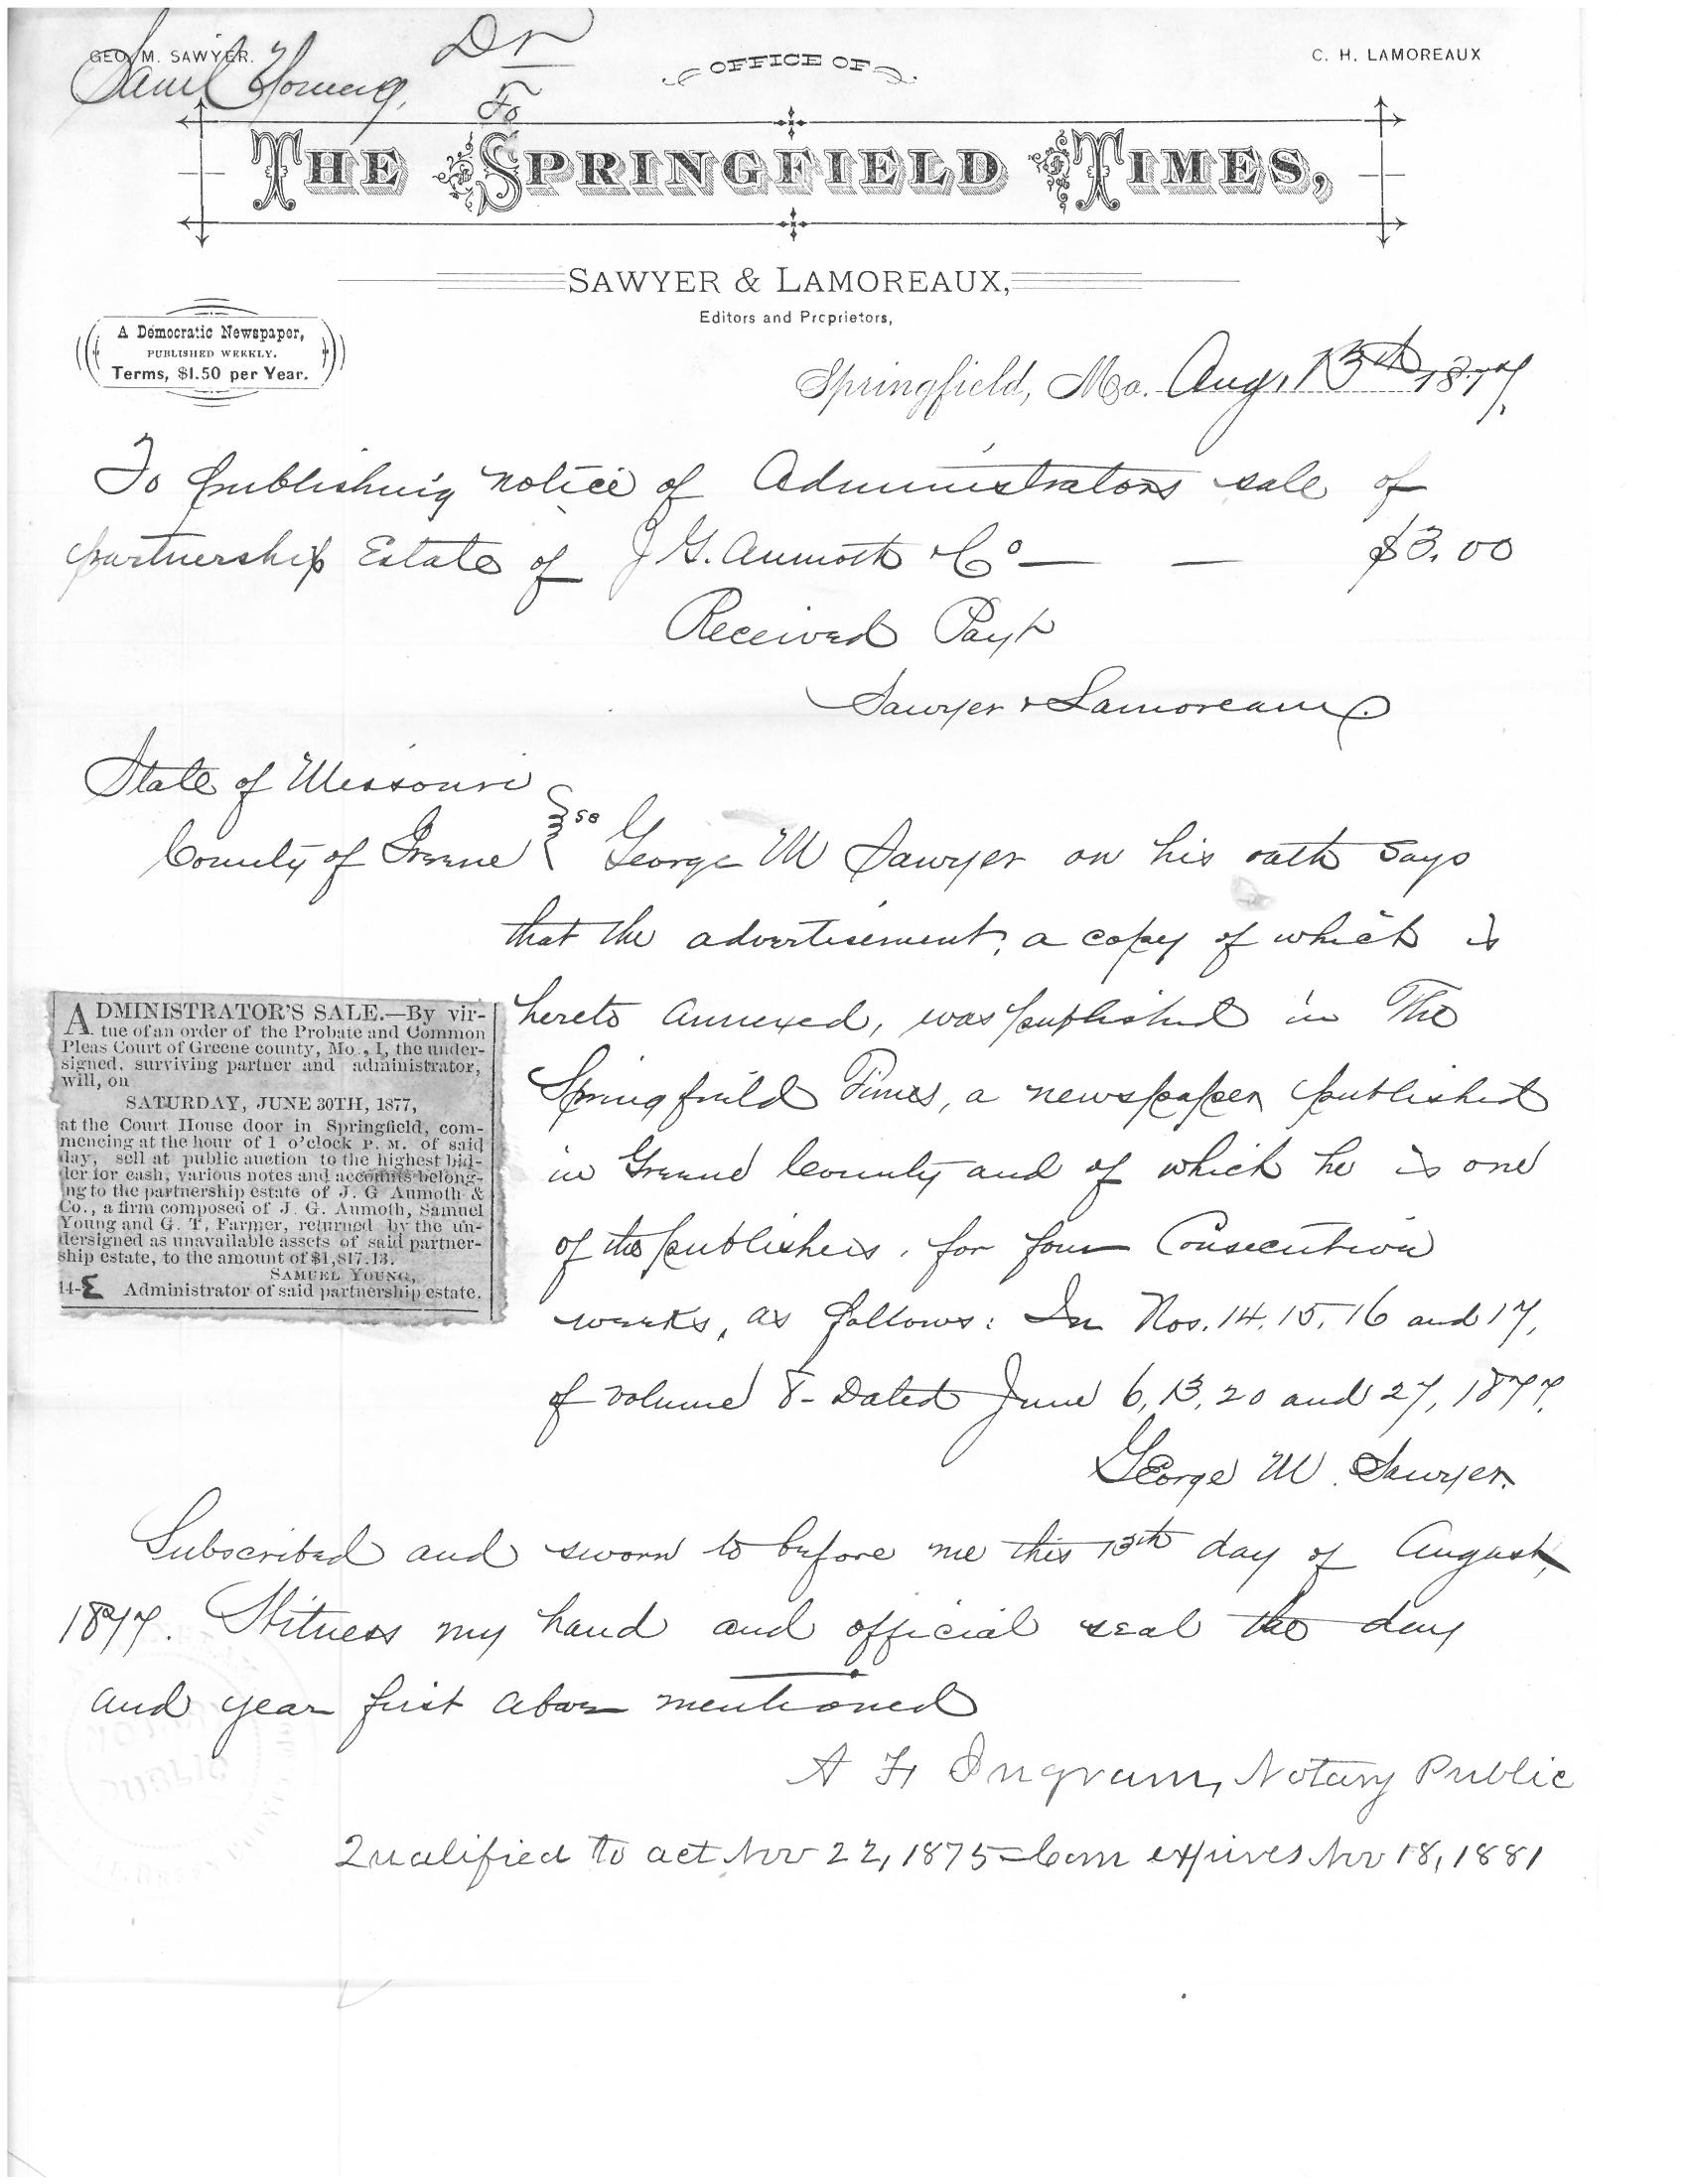 GEO. M. SAWYER.
C. H. LAMOREAUX
Saml Young, Dr
To
OFFICE OF
THE SPRINGFIELD TIMES,
SAWYER & LAMOREAUX,
Editors and Proprietors,
A Democratic Newspaper,
PUBLISHED WEEKLY.
Terms, $1.50 per Year.
Springfield, Mo. Aug, 13th 1877.
To publishing notice of Administrators sale of
partnership Estate of J G. Aumoth & Co — — $3.00
Received Payt
Sawyer & Lamoreaux.
State of Missouri
County of Greene } ss George M Sawyer on his oath says
that the advertisement, a copy of which is
hereto annexed, was published in The
Springfield Times, a newspaper published
in Greene County and of which he is one
of the publishers, for four Consecutive
weeks, as follows: In Nos. 14, 15, 16 and 17,
of volume 8 - Dated June 6, 13, 20 and 27, 1877.
George M. Sawyer.
ADMINISTRATOR'S SALE.—By vir-
tue of an order of the Probate and Common
Pleas Court of Greene county, Mo., I, the under-
signed, surviving partner and administrator,
will, on
SATURDAY, JUNE 30TH, 1877,
at the Court House door in Springfield, com-
mencing at the hour of 1 o'clock P. M. of said
day, sell at public auction to the highest bid-
der for cash, various notes and accounts belong-
ing to the partnership estate of J. G Aumoth &
Co., a firm composed of J. G. Aumoth, Samuel
Young and G. T. Farmer, returned by the un-
dersigned as unavailable assets of said partner-
ship estate, to the amount of $1,817.13.
SAMUEL YOUNG,
14- Administrator of said partnership estate.
Subscribed and sworn to before me this 13th day of August,
1877. Witness my hand and official seal the day
and year first above mentioned
A F, Ingram, Notary Public
Qualified to act Nov 22, 1875 = Com expires Nov 18, 1881
NOTARY
PUBLIC